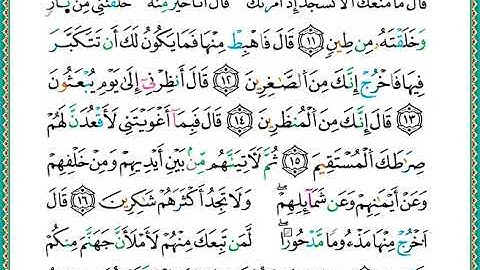 قَالَ مَا مَنَعَكَ أَلَّا تَسْجُدَ إِذْ أَمَرْتُكَ قَالَ أَنَا۠ خَيْرٌ مِّنْهُ خَلَقْتَنِى مِن نَّارٍ
وَخَلَقْتَهُۥ مِن طِينٍ ١١ قَالَ فَٱهْبِطْ مِنْهَا فَمَا يَكُونُ لَكَ أَن تَتَكَبَّرَ
فِيهَا فَٱخْرُجْ إِنَّكَ مِنَ ٱلصَّٰغِرِينَ ١٢ قَالَ أَنظِرْنِىٓ إِلَىٰ يَوْمِ يُبْعَثُونَ
١٣ قَالَ إِنَّكَ مِنَ ٱلْمُنظَرِينَ ١٤ قَالَ فَبِمَآ أَغْوَيْتَنِى لَأَقْعُدَنَّ لَهُمْ
صِرَٰطَكَ ٱلْمُسْتَقِيمَ ١٥ ثُمَّ لَءَاتِيَنَّهُم مِّنۢ بَيْنِ أَيْدِيهِمْ وَمِنْ خَلْفِهِمْ
وَعَنْ أَيْمَٰنِهِمْ وَعَن شَمَآئِلِهِمْ ۖ وَلَا تَجِدُ أَكْثَرَهُمْ شَٰكِرِينَ ١٦ قَالَ
ٱخْرُجْ مِنْهَا مَذْءُومًا مَّدْحُورًا ۖ لَّمَن تَبِعَكَ مِنْهُمْ لَأَمْلَأَنَّ جَهَنَّمَ مِنكُمْ